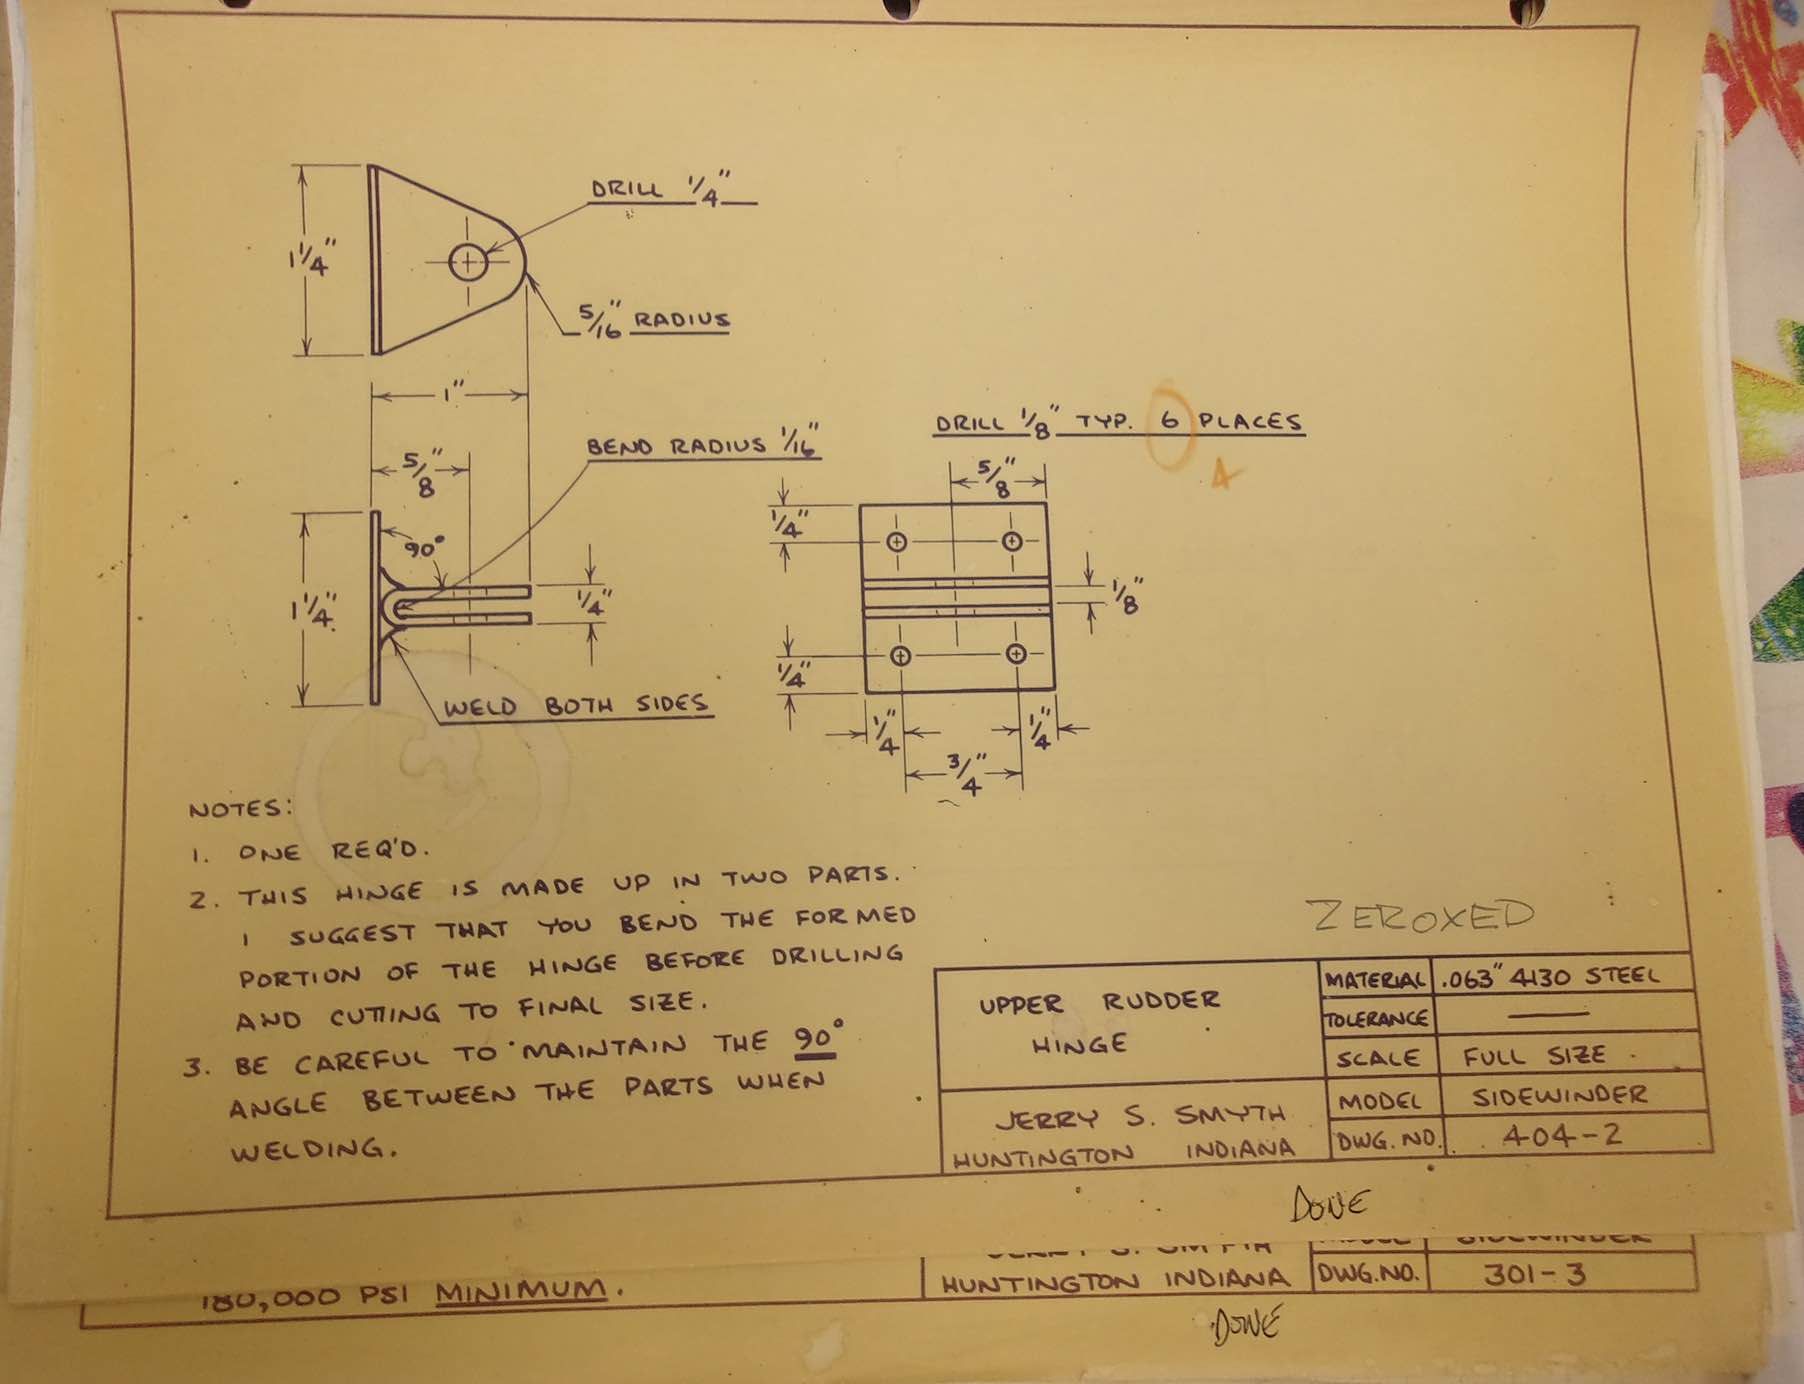 DRILL 1/4"
1 1/4"
5/16" RADIUS
1"
DRILL 1/8" TYP. 6 PLACES
4
BEND RADIUS 1/16"
5/8"
5/8"
1/4"
90°
1 1/4"
1/4"
1/8"
1/4"
WELD BOTH SIDES
1/4"
1/4"
3/4"
NOTES:
1. ONE REQ'D.
2. THIS HINGE IS MADE UP IN TWO PARTS.
I SUGGEST THAT YOU BEND THE FORMED
PORTION OF THE HINGE BEFORE DRILLING
AND CUTTING TO FINAL SIZE.
3. BE CAREFUL TO MAINTAIN THE 90°
ANGLE BETWEEN THE PARTS WHEN
WELDING.
ZEROXED
UPPER RUDDER
HINGE
MATERIAL .063" 4130 STEEL
TOLERANCE —
SCALE FULL SIZE
JERRY S. SMYTH
HUNTINGTON INDIANA
MODEL SIDEWINDER
DWG. NO. 404-2
DONE
180,000 PSI MINIMUM.
JERRY S. SMYTH
HUNTINGTON INDIANA
MODEL SIDEWINDER
DWG. NO. 301-3
DONE